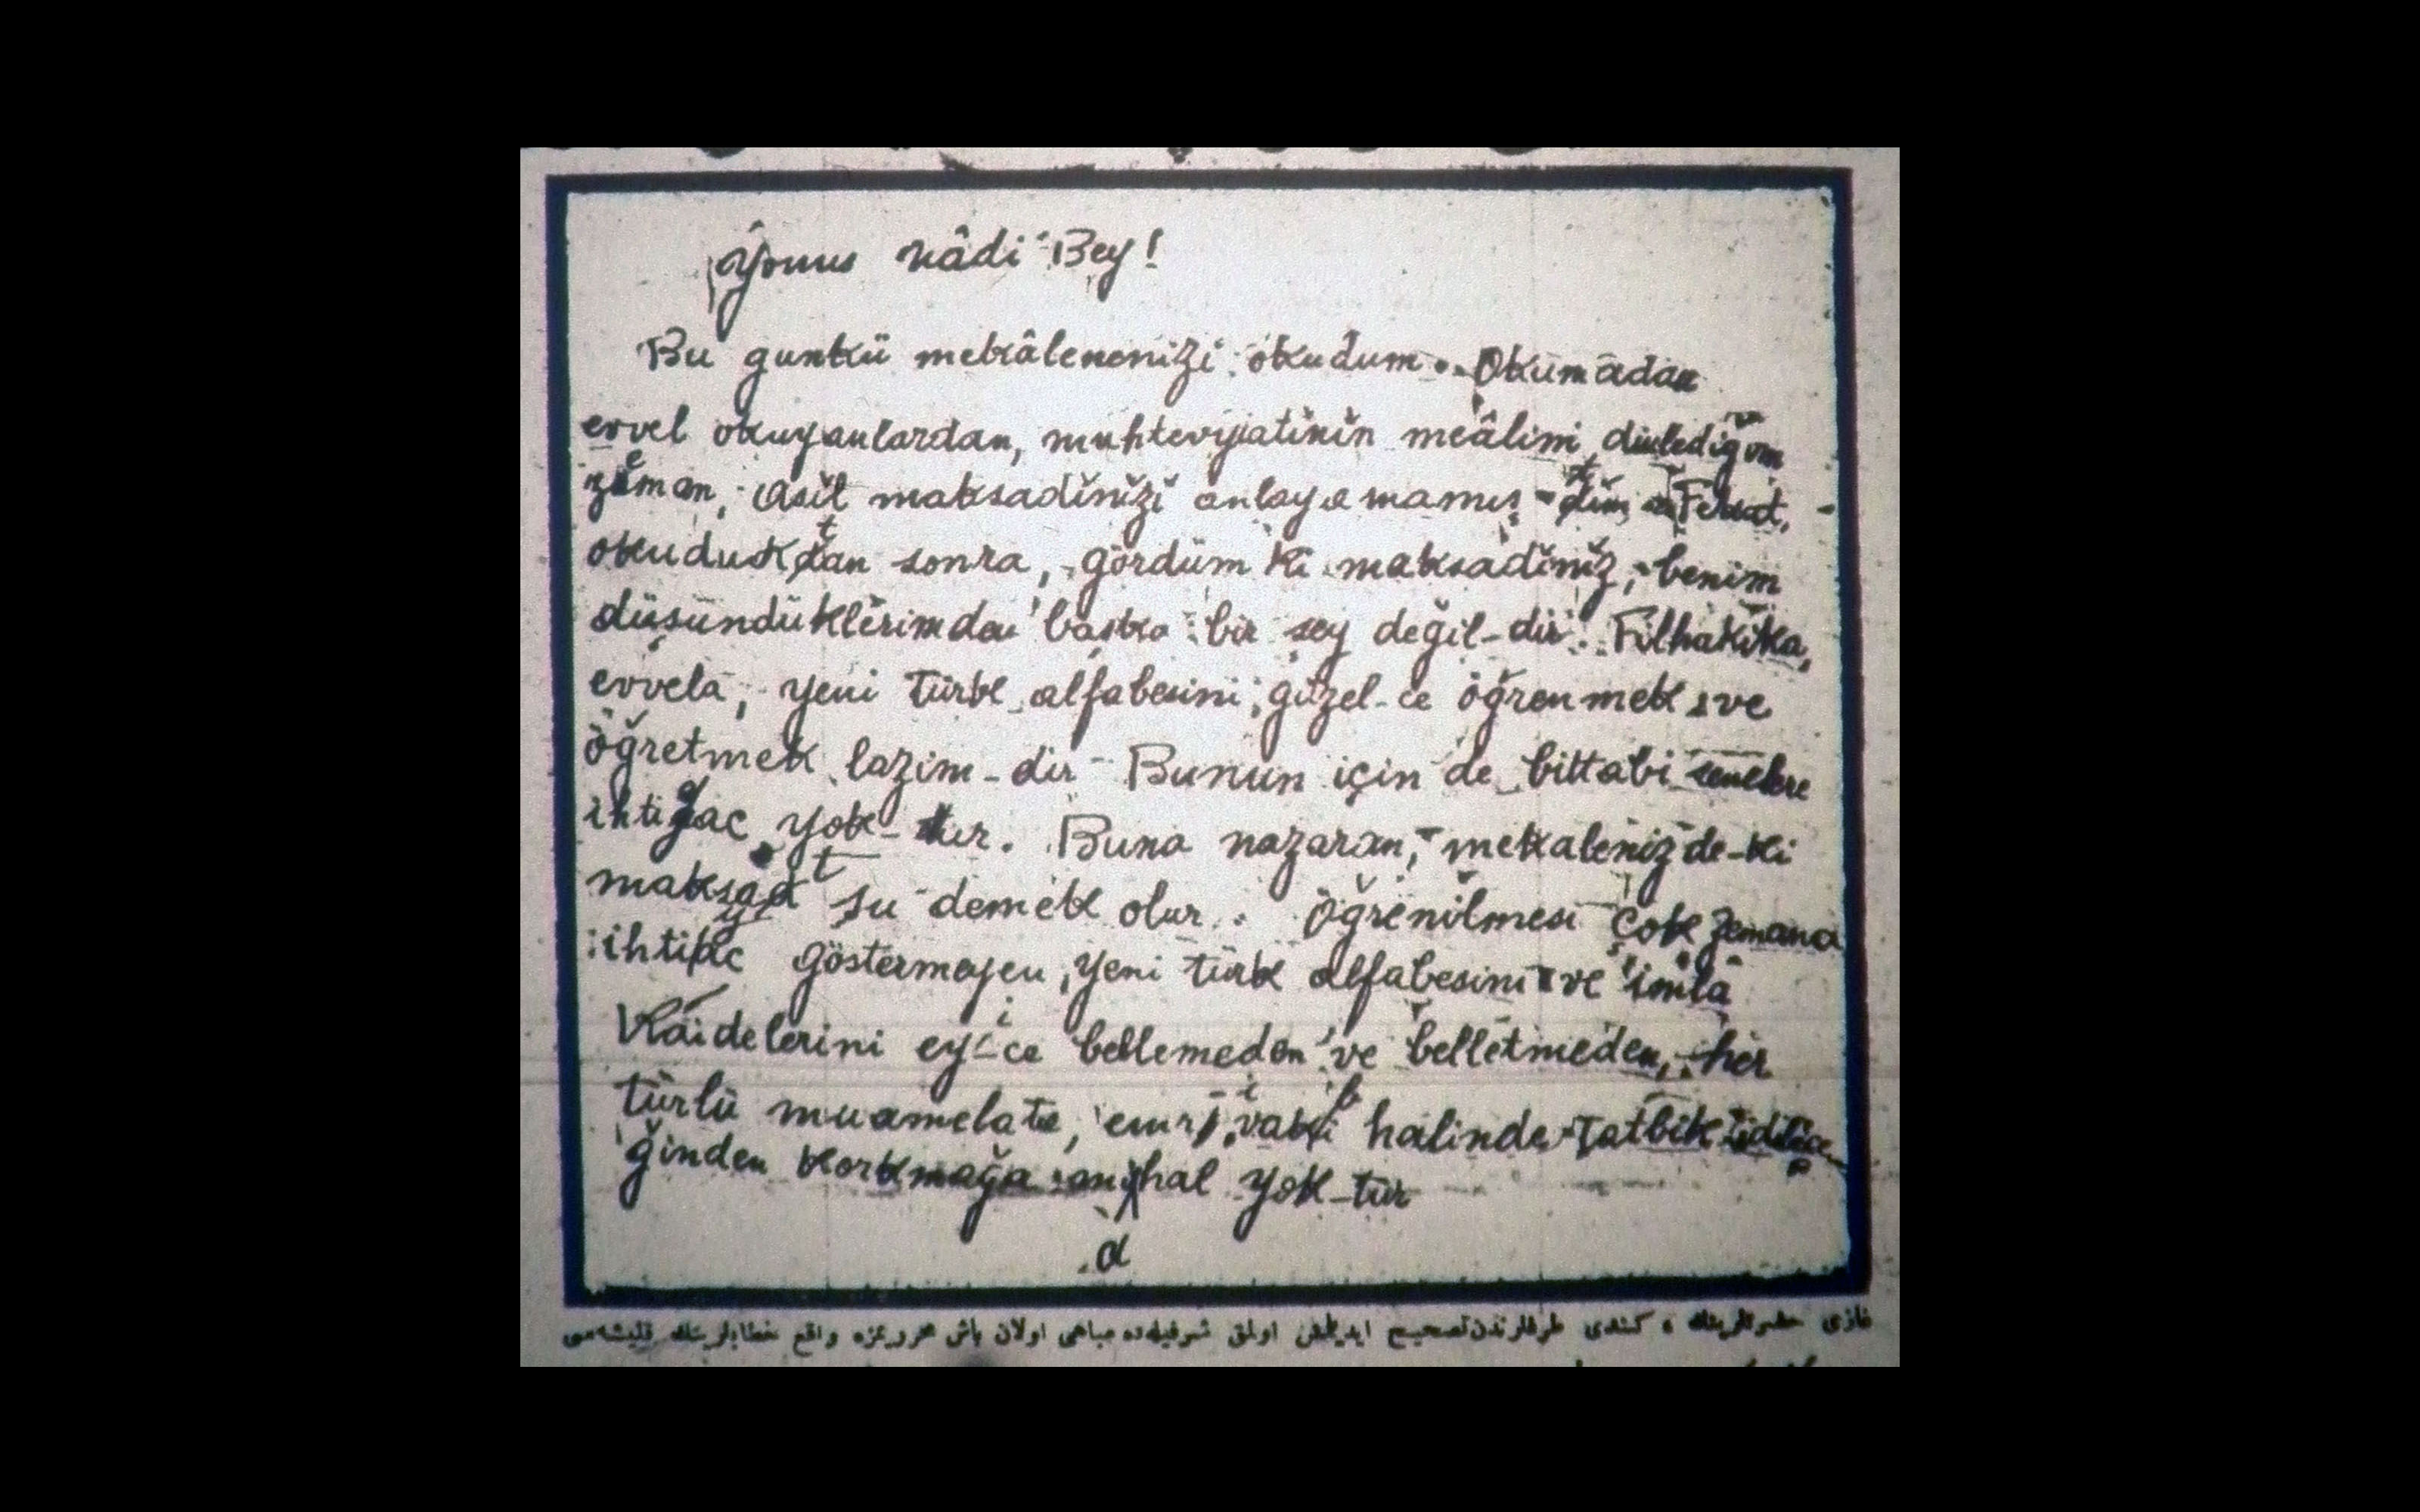 Yonus nâdi Bey!
Bu gunkü mekâlenenizi okudum. Okumadan
evvel okuyanlardan, muhteviyatinin meâlini dinlediğim
zeman, asil maksadĭnĭzĭ anlayamamış-tĭm. Fekat,
okuduktan sonra, gördüm ki maksadĭnĭz, benim
düşündüklerimden başka bir şey değil-dir. Filhakika,
evvela, yeni türk alfabesini, güzel-ce öğrenmek ve
öğretmek lazim-dir Bunun için de bittabi senelere
ihtiyac yok-tur. Buna nazaran, mekalenizde-ki
maksat şu demek olur. Öğrenilmesi çok zemana
ihtiyac göstermeyen, yeni türk alfabesini ve imlâ
Kaidelerini eyi-ce bellemeden ve belletmeden, her
türlü muamelata, emri vaki halinde tatbik edilece
ğinden korkmağa mahal yok-tur
a
غازی حضرتلرینك كندی طرفلرندن تصحیح ایدیلمش اولمق شرفیله ده مباهی اولان باش محرریمزه واقع خطابلرینك قلیشه سی